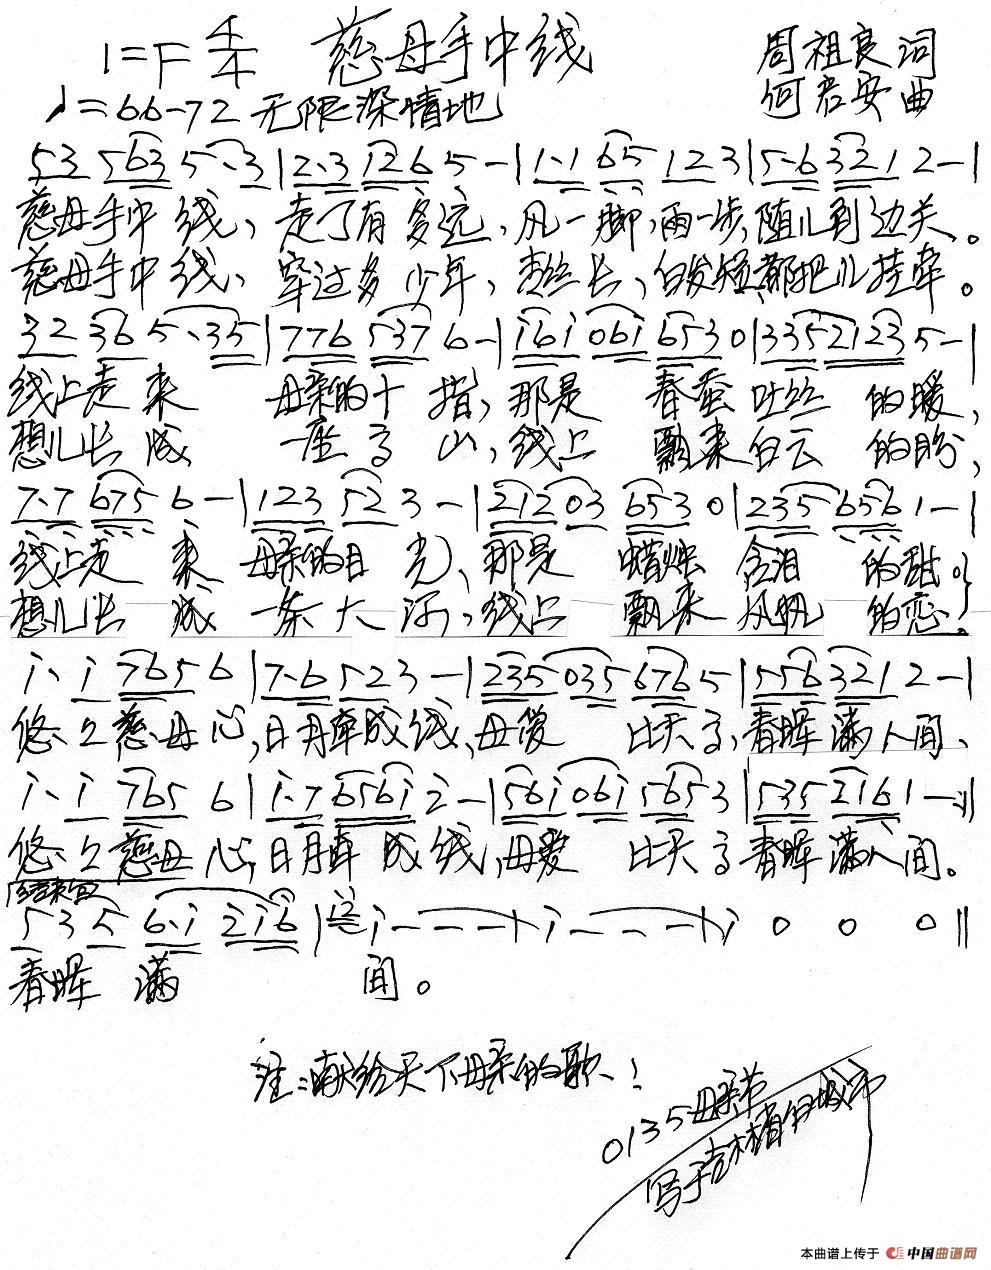 1=F 4/4 慈母手中线 周祖良词
♩=66-72 无限深情地 何君安曲
53 563 5·3|2·3 126 5-|1·1 65 123|5·6 321 2-|
慈母手中线,走了有多远,风一脚,雨一步,随儿到边关。
慈母手中线,穿过多少年,青丝长,白发短,都把儿挂牵。
32 36 5·35|776 537 6-|161 061 653 0|335 2123 5-|
线上走来 母亲的十指,那是 春蚕吐丝 的暖,
想儿长成 一座高山,线上 飘来白云 的盼,
7·7 675 6-|123 52 3-|212 03 653 0|235 656 1-|
线上走来 母亲的目光,那是 蜡烛含泪 的甜。
想儿长成 一条大河,线上 飘来风帆 的恋。
1·1 765 6|7·6 523-|235 035 676 5|556 321 2-|
悠悠慈母心,日月牵成线,母爱 比天高,春晖满人间、
1·1 765 6|1·7 6561 2-|561 061 565 3|535 2161 1-||
悠悠慈母心,日月牵成线,母爱 比天高春晖满人间。
结束句
53 5 6·1 216|12 1---|1---|1 0 0 0||
春晖 满 间。
注:献给天下母亲的歌!
0135母亲节
写于吉林
本曲谱上传于 中国曲谱网